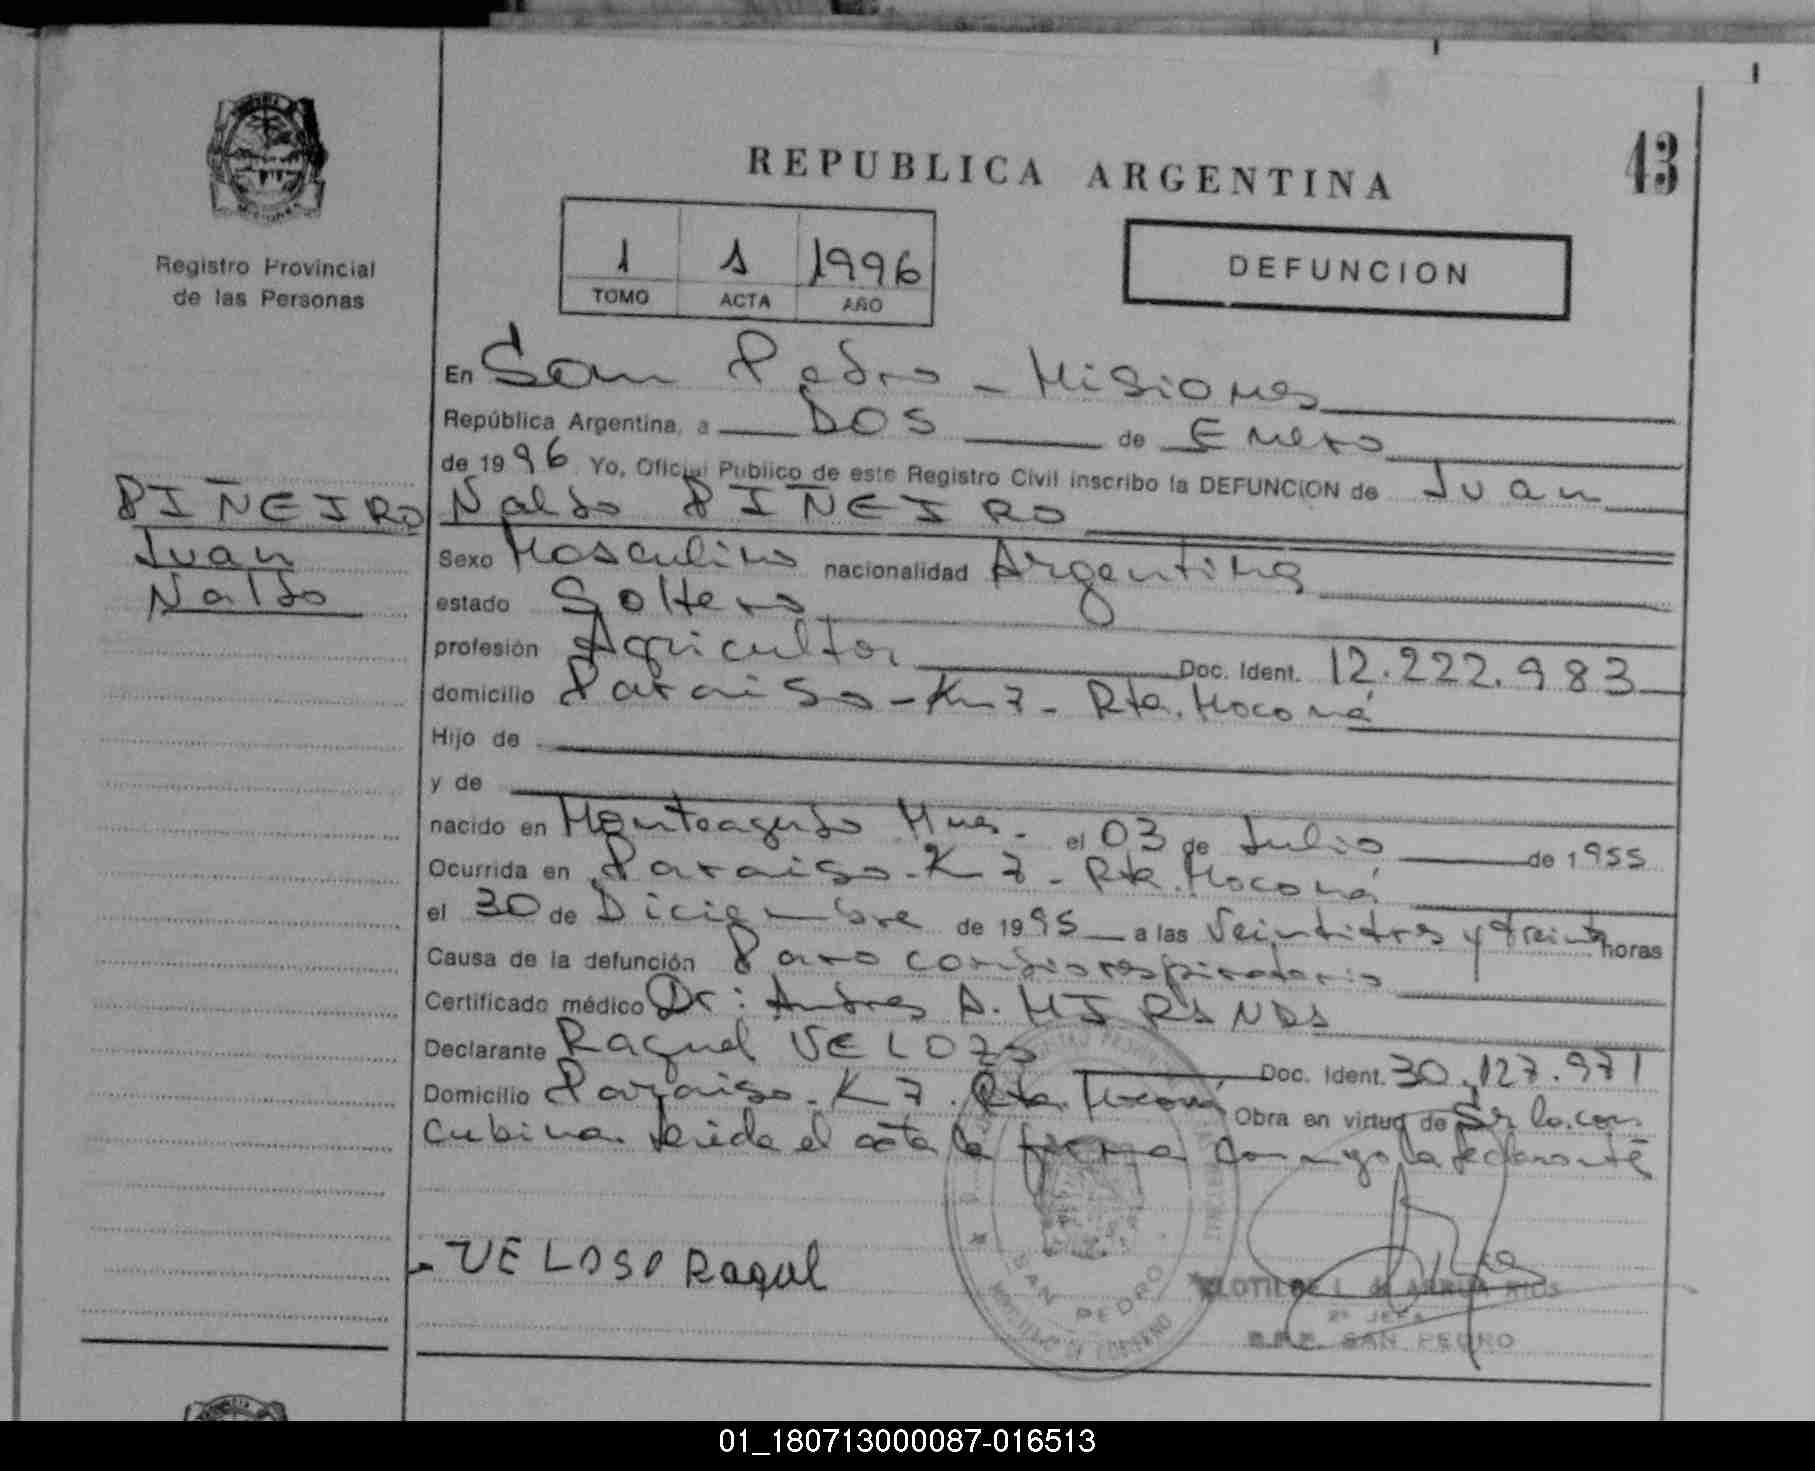 REPUBLICA ARGENTINA
43
Registro Provincial
de las Personas
1 1 1996
TOMO ACTA AÑO
DEFUNCION
En San Pedro - Misiones
República Argentina, a DOS de Enero
de 1996 Yo, Oficial Publico de este Registro Civil inscribo la DEFUNCION de Juan
Naldo PIÑEIRO
PIÑEIRO
Juan
Naldo
Sexo Masculino nacionalidad Argentina
estado Soltero
profesión Agricultor Doc. Ident. 12.222.983
domicilio Paraiso - Km 7 - Rta. Moconá
Hijo de
y de
nacido en Monteagudo Mnes. el 03 de Julio de 1955
Ocurrida en Paraiso - K 7 - Rta. Moconá
el 30 de Diciembre de 1995 a las Veintitres y treinta horas
Causa de la defunción Paro cardiorespiratorio
Certificado médico Dr: Andres A. MIRANDA
Declarante Raquel VELOZO Doc. Ident. 30.127.971
Domicilio Paraiso - K 7 - Rta. Moconá Obra en virtud de Sr la con
cubina. Leida el acta la firma conmigo la declarante
- VELOSO Raqul
SAN PEDRO
MINISTERIO DE GOBIERNO
CLOTILDE I. de ARRUA RIOS
2º JEFA
SAN PEDRO
01_180713000087-016513